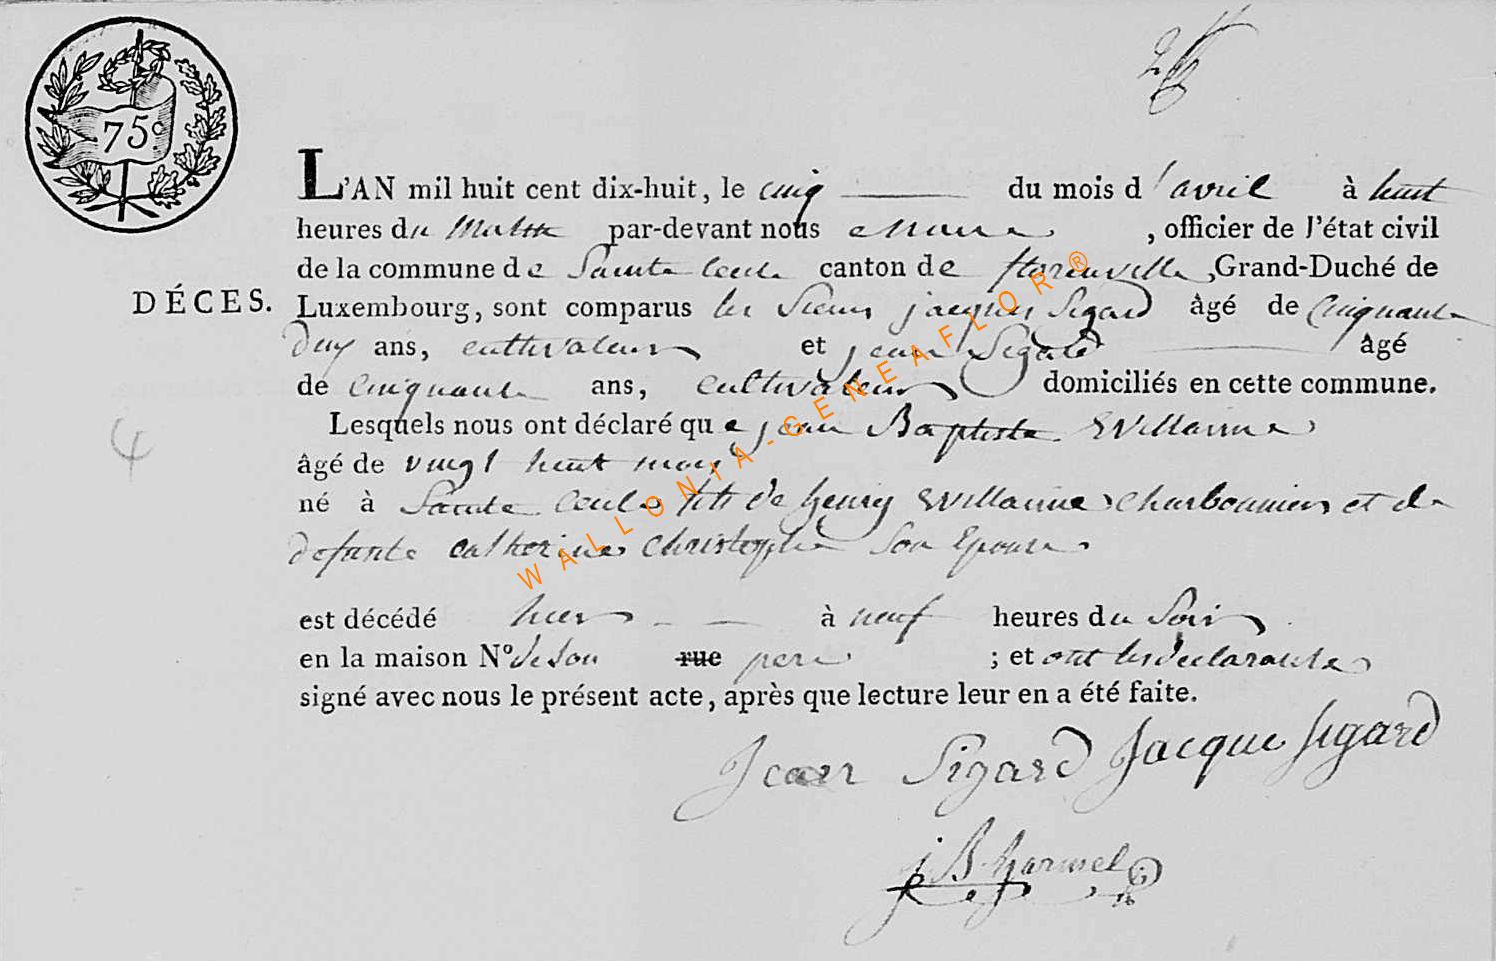 75c.
L'AN mil huit cent dix-huit, le cinq du mois d'avril à huit
heures du Matin par-devant nous Maire, officier de l'état civil
de la commune de Sainte Cecile canton de florenville, Grand-Duché de
DÉCES. Luxembourg, sont comparus les Sieurs jacques Sigard âgé de Cinquante
Deux ans, cultivateur et jean Sigard âgé
de cinquante ans, cultivateur domiciliés en cette commune.
Lesquels nous ont déclaré que jean Baptiste Willaime
âgé de vingt huit mois
né à Sainte Cecile fils de henry Willaime Charbonnier et de
defunte catherine Christophe Son Epouse
est décédé hier à neuf heures du Soir
en la maison N° de Son rue pere ; et ont les declarants
signé avec nous le présent acte, après que lecture leur en a été faite.
Jean Sigard Jacque Sigard
j B harmel
WALLONIA-GENEAFLOR®